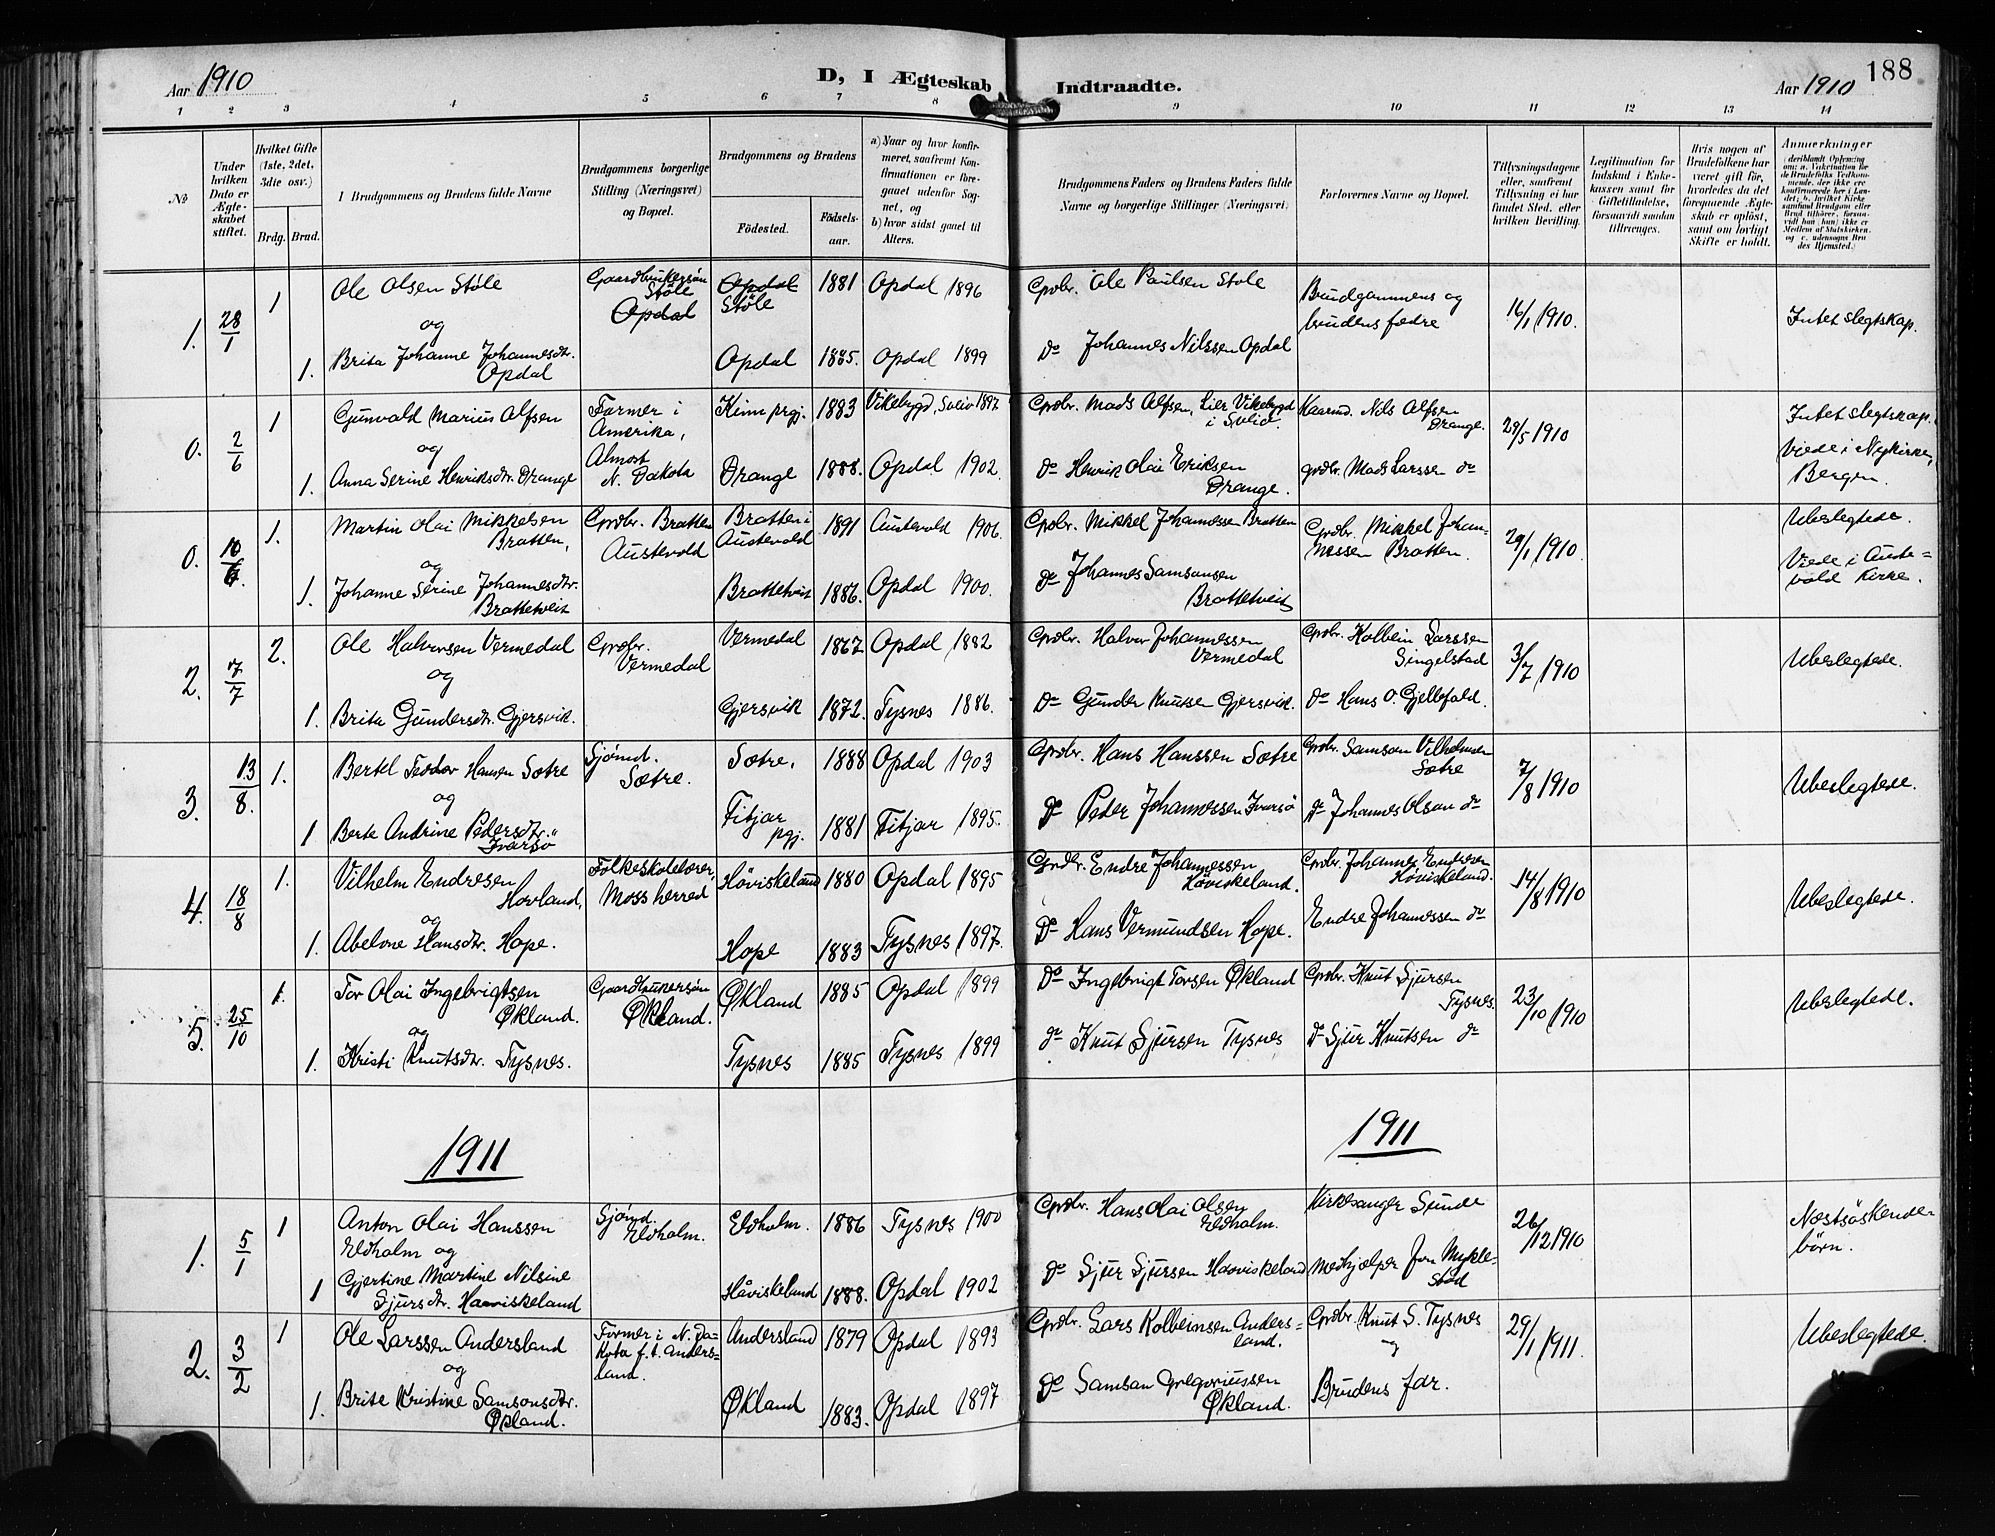 Aar 1910
D, I Ægteskab Indtraadte.
188
Aar 1910
1 2 3 4 5 6 7 8 9 10 11 12 13 14
No
Under hvilken Dato er Ægteskabet stiftet.
Hvilket Gifte (1ste, 2det, 3die osv.)
Brdg. Brud.
Brudgommens og Brudens fulde Navne
Brudgommens borgerlige Stilling (Næringsvei) og Bopæl.
Brudgommens og Brudens
Fødested.
Fødselsaar.
a) Naar og hvor konfirmeret, saafremt Konfirmationen er foregaaet udenfor Sognet, og
b) hvor sidst gaaet til Alters.
Brudgommens Faders og Brudens Faders fulde Navne og borgerlige Stillinger (Næringsvei)
Forlovernes Navne og Bopæl.
Tillysningsdagene eller, saafremt Tillysning ei har fundet Sted, efter hvilken Bevilling.
Legitimation for Indskud i Enkekassen samt for Giftetilladelse, forsaavidt saadan tiltrænges.
Hvis nogen af Brudefolkene har været gift før, hvorledes da det foregaaende Ægteskab er opløst, samt om lovligt Skifte er holdt.
Anmerkninger
1. 28/1 1 Ole Olsen Støle Gaardbrukersøn Støle Opdal Opdal Støle 1881 Opdal 1896 Grdbr. Ole Paulsen Støle Brudgommens og brudens fædre 16/1 1910. Intet slegtskap.
og
1. Brita Johanne Johannesdtr. Opdal Opdal 1885. Opdal 1899 Do Johannes Nilssen Opdal
0. 2/6 1 Gunvald Marius Alfsen Farmer i Amerika, Almost N. Dakota Kinn prgj. 1883 Vikebygd, Sveio 1897 Grdbr. Mads Alfsen, Lier Vikebygd i Sveio. Kaarmd. Nils Alfsen Drange. 29/5 1910 Intet slegtskap. Viede i Nykirken, Bergen.
og
1. Anna Serine Henriksdtr. Drange Drange 1888. Opdal 1902. do Henrik Olai Eriksen Drange. grdbr. Mads Larssen do
0. 10/6. 1. Martin Olai Mikkelsen Bratten, Grdbr. Bratten Austevold Bratten i Austevold 1891 Austevold 1906. Grdbr. Mikkel Johannessen Bratten Grdbr. Mikkel Johannessen Bratten. 29/1 1910. Ubeslegtede. Viede i Austevold Kirke.
og
1. Johanne Serine Johannesdtr. Brattetveit Brattetveit 1886. Opdal 1900. do Johannes Samsonsen Brattetveit
2. 7/7 2. Ole Halversen Vermedal Grdbr. Vermedal Vermedal 1867 Opdal 1882 Grdbr. Halvor Johannessen Vermedal Grdbr. Kolbein Larssen Singelstad 3/7 1910 Ubeslegtede.
og
1. Brita Gundersdtr. Gjersvik. Gjersvik 1872. Tysnes 1886. Do Gunder Knutsen Gjersvik. Do Hans O. Gjellefald.
3. 13/8. 1. Bertel Teodor Hansen Sætre Sjømd. Sætre. Sætre. 1888 Opdal 1903 Grdbr. Hans Hanssen Sætre Grdbr. Samson Vilhelmsen Sætre 7/8 1910 Ubeslegtede.
og
1 Berte Andrine Pedersdtr. Ivarsø Fitjar pgj. 1881 Fitjar 1895. Do Peder Johannessen Ivarsø do Johannes Olsen do
4. 18/8 1. Vilhelm Endresen Hovland, Folkeskolelærer, Moss herred Høviskeland 1880 Opdal 1895 Grdbr. Endre Johannessen Høviskeland. Grdbr. Johannes Endresen Høviskeland. 14/8 1910 Ubeslegtede.
og
1. Abelone Hansdtr. Hope. Hope 1883 Tysnes 1897. Do Hans Vermundsen Hope. Endre Johannessen do
5. 25/10 1. Tor Olai Ingebrigtsen Økland. Gaardbrukersøn Økland. Økland 1885 Opdal 1899 Do Ingebrigt Torsen Økland Grdbr. Knut Sjursen Tysnes. 23/10 1910 Ubeslegtede.
og
1. Kristi Knutsdtr. Tysnes. Tysnes 1885 Tysnes 1899 do Knut Sjursen Tysnes Do Sjur Knutsen do
1911 1911
1. 5/1 1 Anton Olai Hanssen Eldholm og Sjømd. Eldholm. Eldholm. 1886 Tysnes 1900 Grdbr. Hans Olai Olsen Eldholm. Kirkesanger Sunde 26/12 1910 Næstsøskendebörn.
1 Gjertine Martine Nilsine Sjursdtr. Haaviskeland Håviskeland 1888. Opdal 1902 do Sjur Sjursen Haaviskeland medhjælper Jon Myklestad
2. 3/2 1 Ole Larssen Andersland Farmer i N. Dakota f. t. Andersland. Andersland 1879 Opdal 1893 Grdbr. Lars Kolbeinsen Andersland. Grdbr. Knut S. Tysnes 29/1 1911. Ubeslegtede.
og og
1. Brite Kristine Samsonsdtr. Økland. Økland 1883. Opdal 1897 do Samson Gregoriussen Økland. Brudens far.